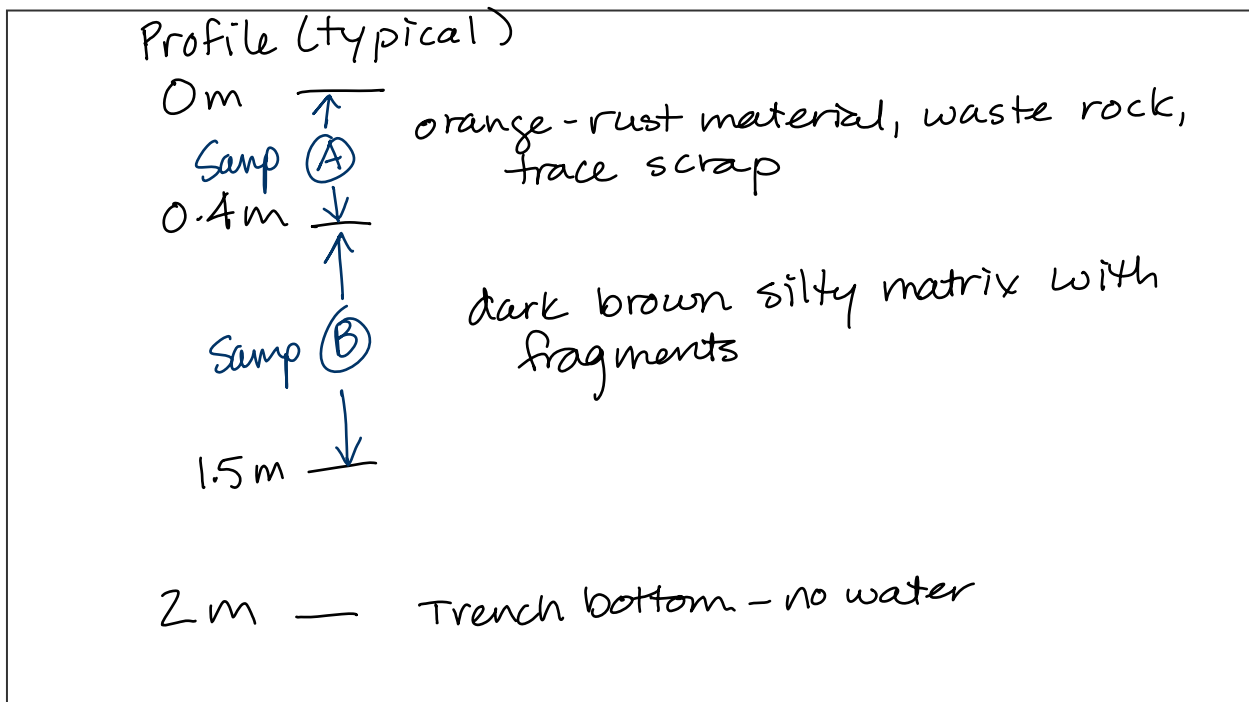 Profile (typical)
0m
orange-rust material, waste rock,
Samp A
trace scrap
0.4m
dark brown silty matrix with
Samp B
fragments
1.5m
2m — Trench bottom - no water